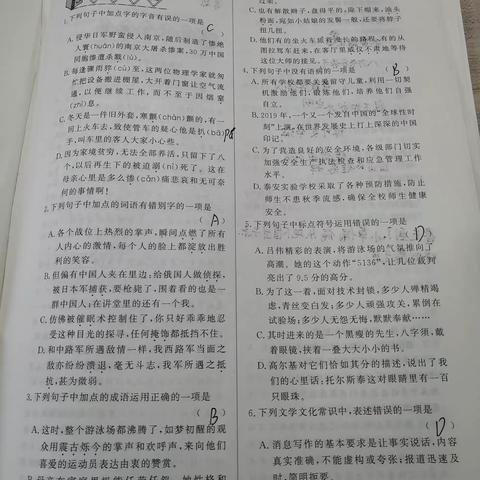 1.下列句子中加点字的字音有误的一项是
( C )
A.侵华日军野蛮侵入南京,随后制造了惨绝
人寰(huán)的南京大屠杀惨案,30万中国
同胞惨遭杀戮(lù)!
B.每逢骤雨猝(cù)至,这两位物理学家就匆
忙把设备搬进棚屋,大开着门窗让空气流
通,以便继续工作,而不至于因烟窒
(zhì)息。
C.冬天是一件旧外套,寒颤(chàn)的,有一
回上火车去,致使管车的疑心他是扒(bā)
手,叫车里的客人大家小心些。
D.因为家境贫穷,无法全部养活,只留下了八
个,以后再生下的被迫溺(nì)死了。这在
母亲心里是多么惨(cǎn)痛悲哀和无可奈
何的事情啊!
2.下列句子中加点的词语有错别字的一项是
( A )
A.各个战位上热烈的掌声,瞬间点燃了所有
人内心的激情,每个人的脸上都淀放出胜
利的笑容。
B.但偏有中国人夹在里边:给俄国人做侦探,
被日本军捕获,要枪毙了,围着看的也是一
群中国人;在讲堂里的还有一个我。
C.仿佛被催眠术控制住了,你只好乖乖地忍
受这种目光的探寻,任何掩饰都抵挡不住。
D.和中路军所遇敌情一样,我西路军当面之
敌亦纷纷溃退,毫无斗志,我军所遇之抵
抗,甚为微弱。
3.下列句子中加点的成语运用正确的一项是
( B )
A.这时,整个游泳场都沸腾了,如梦初醒的观
众用震古烁今的掌声和欢呼声,来向他们
喜爱的运动员表达由衷的赞赏。
C.也有解散辫子,盘得平的,除下帽来,油头
粉面,宛如小姑娘的发髻一般,还要将脖子
扭几扭。
图拉驾车赶来,在客厅里诚惶诚恐地等待
这位大师的接见。
4.下列句子中没有语病的一项是
( B )
A.所有学校都要关爱留守儿童,利用一切契
机激励他们,锻炼他们,培养他们自强
自立。
B.2019年,一个又一个发自中国的“全球性时
刻”上演,在世界发展史上打上深深的中国
印记。
C.为了营造良好的安全环境,各级部门切实
加强安全生产执法检查和应急管理工作
水平。
D.泰安实验学校采取了各种预防措施,防止
师生不患秋季流感,确保全校师生健康
安全。
5.下列句子中标点符号运用错误的一项是
( D )
A.吕伟精彩的表演,将游泳场的气氛推向了
高潮。她的这个动作“5136”,让几位裁判
亮出了9.5分的高分。
B.为了这一着,面对技术封锁,多少人殚精竭
虑,青丝变白发;多少人顽强攻关,累倒在
试验场;多少人无怨无悔,默默奉献……
C.其时进来的是一个黑瘦的先生,八字须,戴
着眼镜,挟着一叠大大小小的书。
D.高尔基对它们恰如其分的描述,说出了我
们的心里话,托尔斯泰这对眼睛里有一百
只眼珠。
6.下列文学文化常识中,表述错误的一项是
( D )
A.消息写作的基本要求是让事实说话,内容
真实准确,不能虚构或夸张;报道迅速及
时,简明扼要。